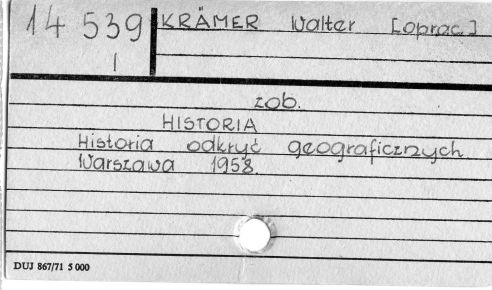 14 539 KRÄMER Walter [oprac]
I
zob.
HISTORIA
Historia odkryć geograficznych
Warszawa 1958.
DUJ 867/71 5 000